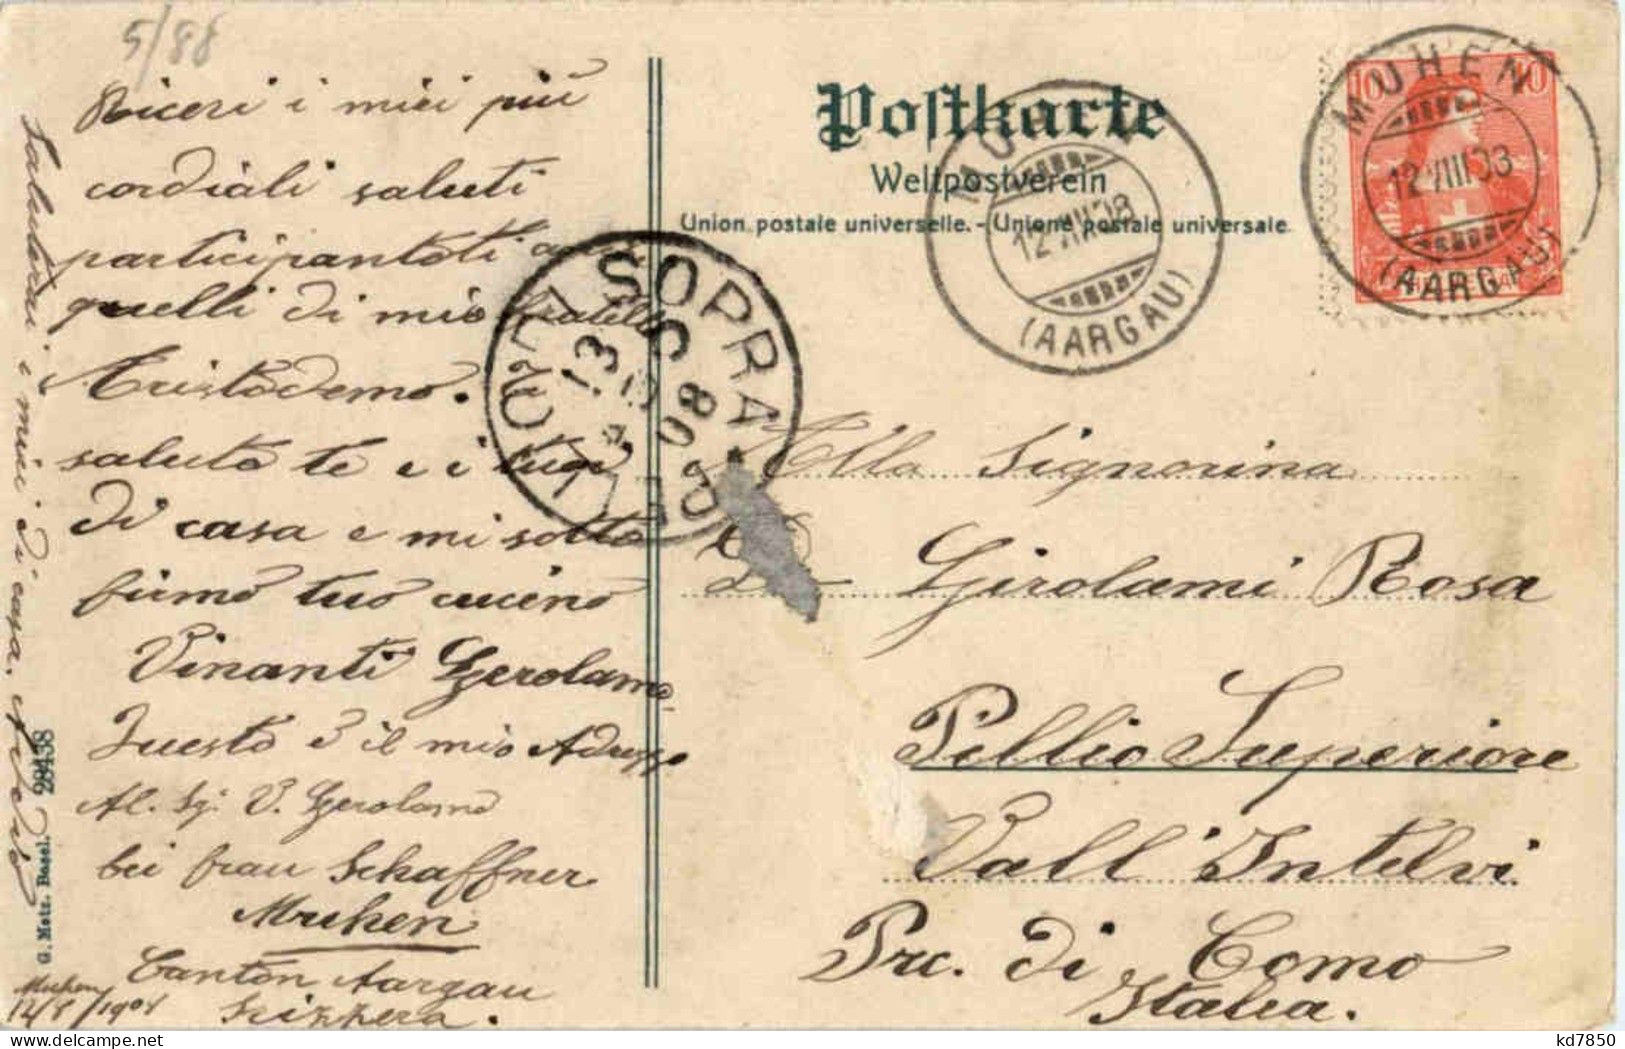 5/88
Riceri i miei più
cordiali saluti
participantoti a
quelli di mio fratello
Aristodemo.
saluta te e i tuoi
di casa e mi sotto
firmo tuo cucino
Vinanti Gerolamo
Questo è il mio Adrezzo
Al. Sg. V. Gerolamo
bei frau Schaffner
Muhen
Canton Aargau
Svizzera.
Muhen
12/8/1908
Saluteri i miei di casa.
G. Metz. Basel. 28438
Postkarte
Weltpostverein
Union postale universelle. - Unione postale universale
MUHEN
12 VIII 08
(AARGAU)
10 10
MUHEN
12 VIII 08
(AARGAU)
SOPRA
13 08
Alla Signorina
Girolami Rosa
Pellio Superiore
Vall' Intelvi
Prc. di Como
Italia.
kd7850